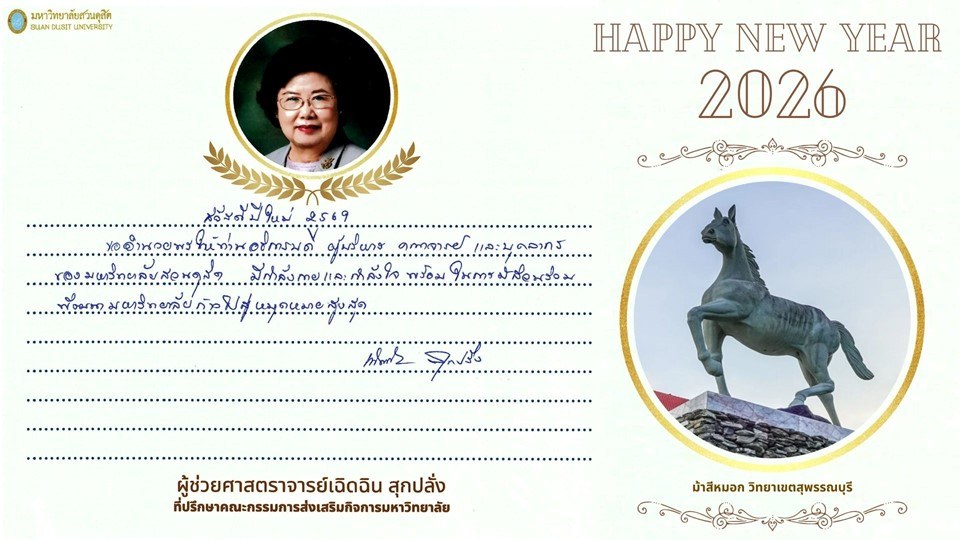 มหาวิทยาลัยสวนดุสิต
SUAN DUSIT UNIVERSITY
สวัสดีปีใหม่ 2569
ขออำนวยพรให้ท่านอธิการบดี ผู้บริหาร คณาจารย์ และบุคลากร
ของมหาวิทยาลัยสวนดุสิต มีกำลังกายและกำลังใจ พร้อมในการมีส่วนร่วม
พัฒนามหาวิทยาลัยก้าวไปสู่หมุดหมายสูงสุด
สุกปลั่ง
ผู้ช่วยศาสตราจารย์เฉิดฉิน สุกปลั่ง
ที่ปรึกษาคณะกรรมการส่งเสริมกิจการมหาวิทยาลัย
HAPPY NEW YEAR
2026
ม้าสีหมอก วิทยาเขตสุพรรณบุรี